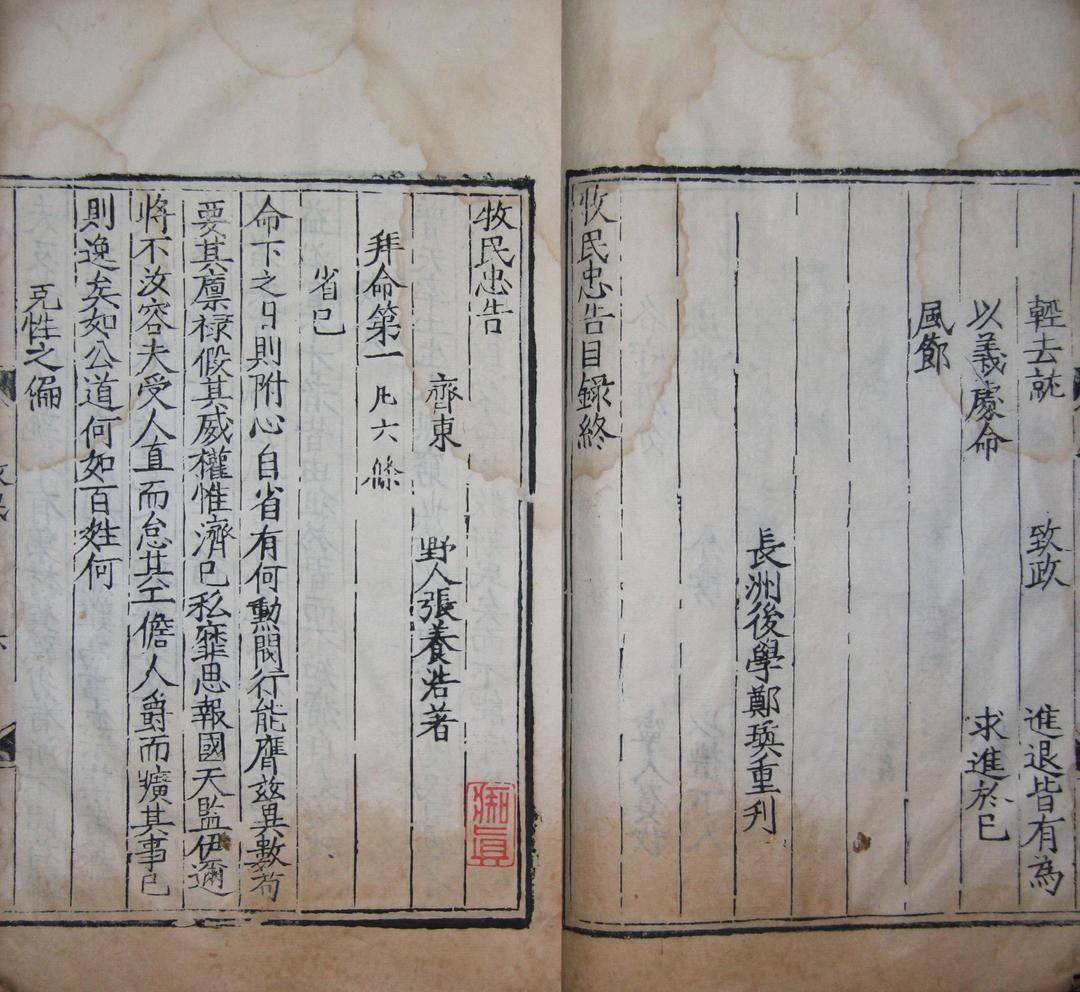 輕去就　致政　進退皆有為
以義處命　求進於已
風節
長洲後學鄭瑛重刋
牧民忠告目録終
牧民忠告
齊東　野人張養浩著
拜命第一　凡六條
省已
命下之日則附心自省有何勲閥行能膺兹異數茍
要其廪禄假其威權惟濟已私靡思報國天監伊邇
將不汝容夫受人直而怠其工儋人爵而曠其事已
則逸矣如公道何如百姓何
克性之偏
牧民